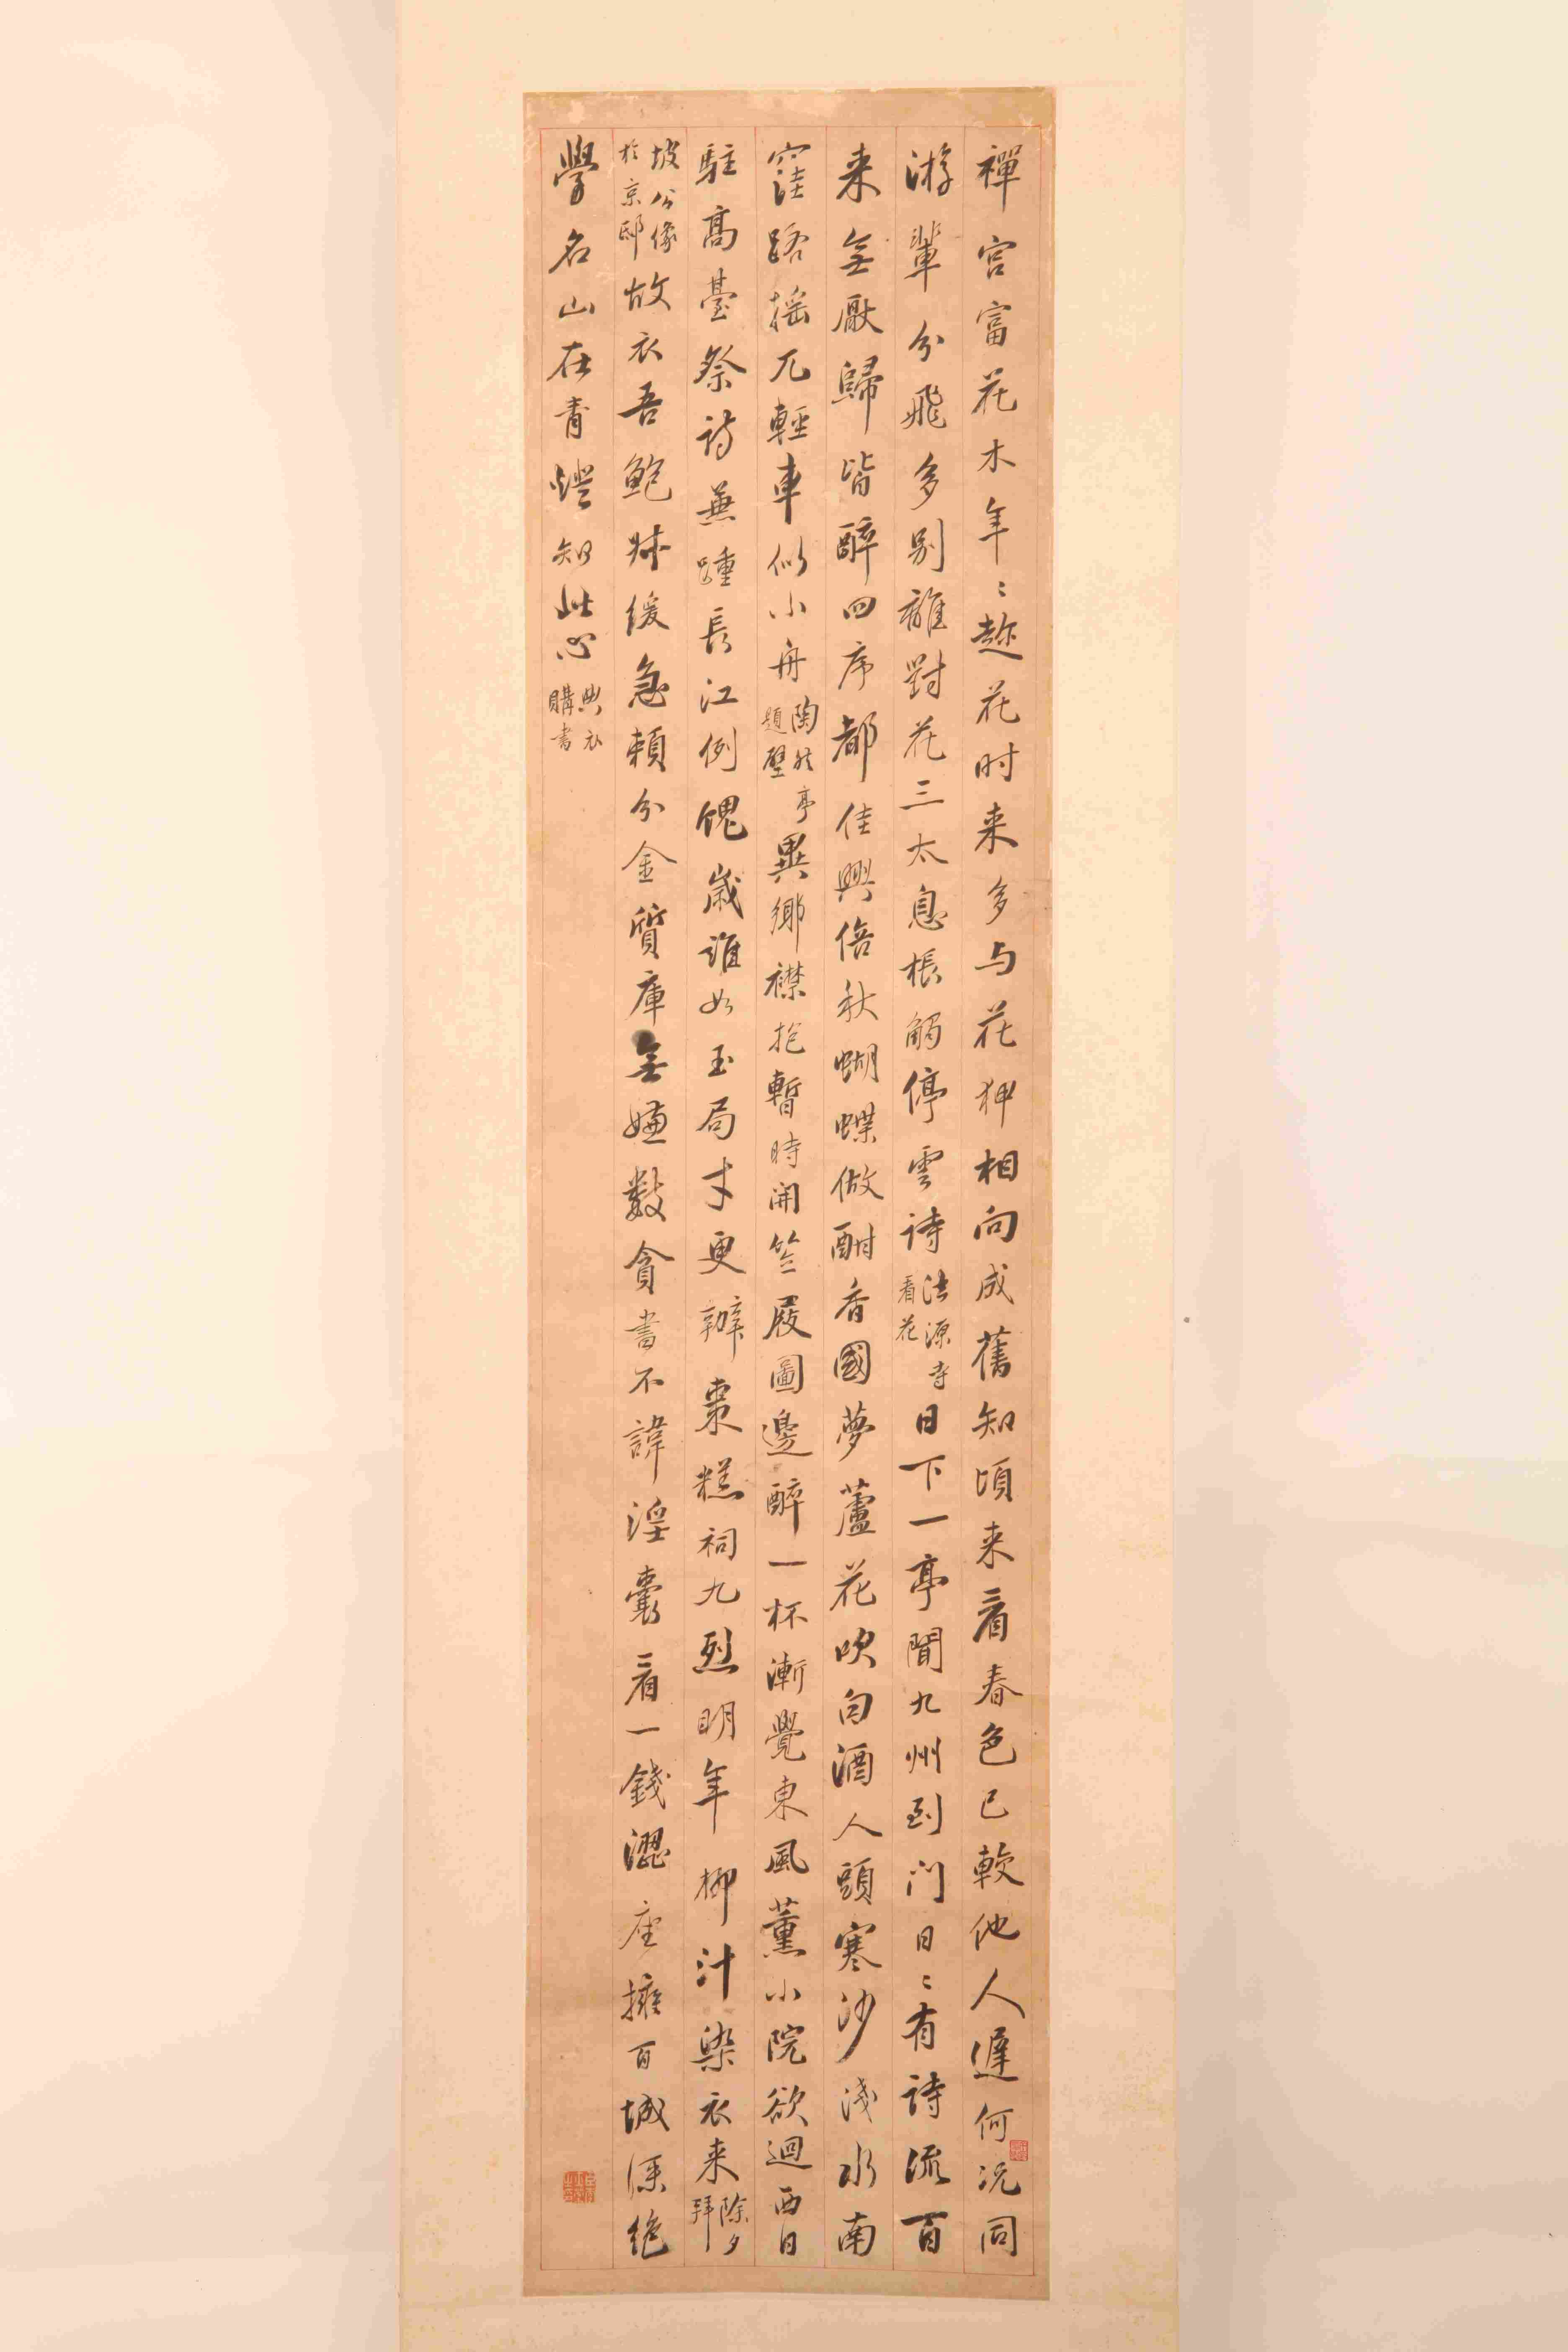 禪宮富花木年〻趂花时来多与花狎相向成舊知頃来看春色已較他人遲何况同
游輩分飛多别離對花三太息棖觸停雲詩法源寺看花日下一亭聞九州到门日〻有詩流百
来無厭歸皆醉四序都佳興倍秋蝴蝶做酣香國夢蘆花吹白酒人頭寒沙淺水南
窪路摇兀輕車似小舟陶然亭題壁異鄉襟抱暫時開笠屐圖邊醉一杯漸覺東風薰小院欲迴西日
駐高臺祭詩兼踵長江例餽歲誰如玉局才更辦棗糕祠九烈明年柳汁染衣来除夕拜
坡公像於京邸故衣吾鮑叔緩急賴分金質庫無嫌數貪書不諱淫囊看一錢澀座擁百城深絶
學名山在青燈知此心典衣購書